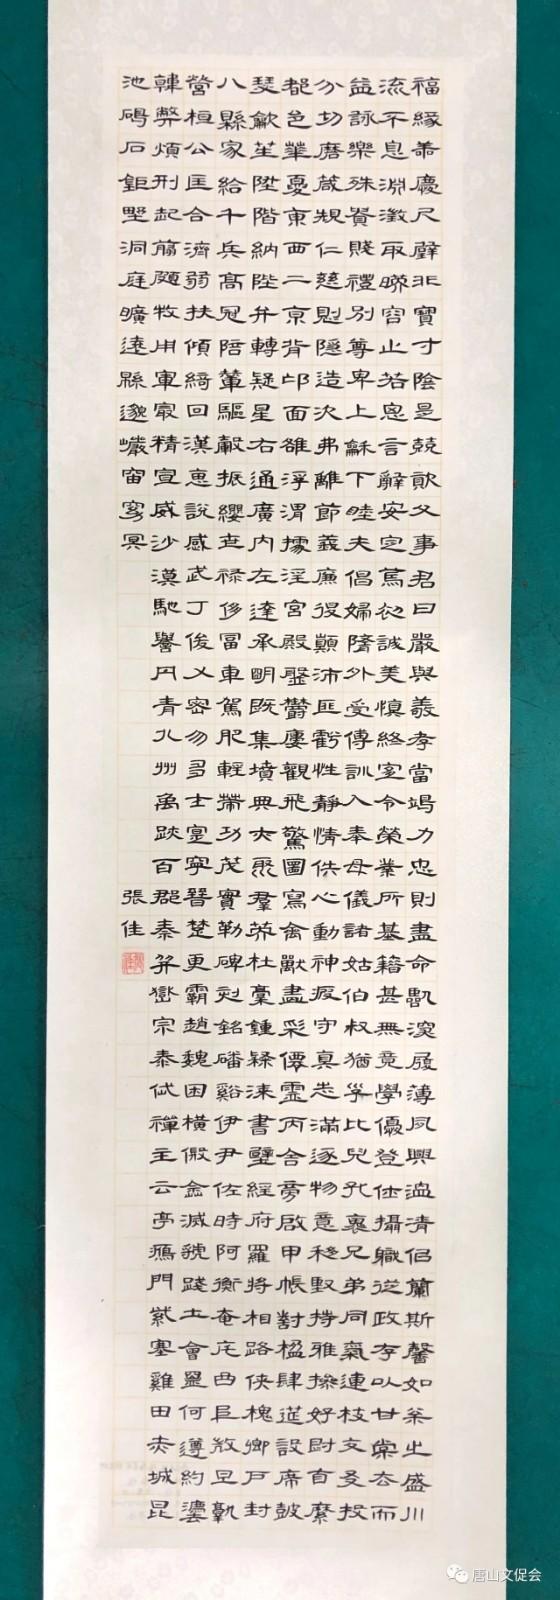 福緣善慶尺璧非寶寸陰是競資父事君曰嚴與敬孝當竭力忠則盡命臨深履薄夙興溫凊侣蘭斯馨如松之盛川
流不息淵澂取暎容止若思言辭安定篤初誠美慎終宜令榮業所基籍甚無竟學優登仕攝職從政存以甘棠去而
益詠樂殊貴賤禮別尊卑上龢下睦夫倡婦隨外受傅訓入奉母儀諸姑伯叔猶子比兒孔褱兄弟同氣連枝交友投
分切磨箴規仁慈惻隱造次弗離節義廉退顛沛匪虧性靜情佚心動神疲守真志滿逐物意移堅持雅操好爵自縻
都邑華夏東西二京背邙面雒浮渭據涇宮殿盤鬱樓觀飛驚圖寫禽獸畫彩僊靈丙舍旁啟甲帳對楹肆筵設席鼓
瑟龡笙陞階納陛弁轉疑星右通廣內左達承明既集墳典亦聚群英杜稾鍾隸漆書壁經府羅將相路俠槐卿戶封
八縣家給千兵高冠陪輦驅轂振纓世祿侈富車駕肥輕策功茂實勒碑刻銘磻谿伊尹佐時阿衡奄宅曲阜微旦孰
營桓公匡合濟弱扶傾綺回漢惠說感武丁俊乂密勿多士寔寧晉楚更霸趙魏困橫假涂滅虢踐土會盟何遵約灋
韓弊煩刑起翦頗牧用軍最精宣威沙漠馳譽丹青九州禹跡百郡秦并嶽宗泰岱禪主云亭鴈門紫塞雞田赤城昆
池碣石鉅野洞庭曠遠緜邈巖岫窈冥
張佳
唐山文促会